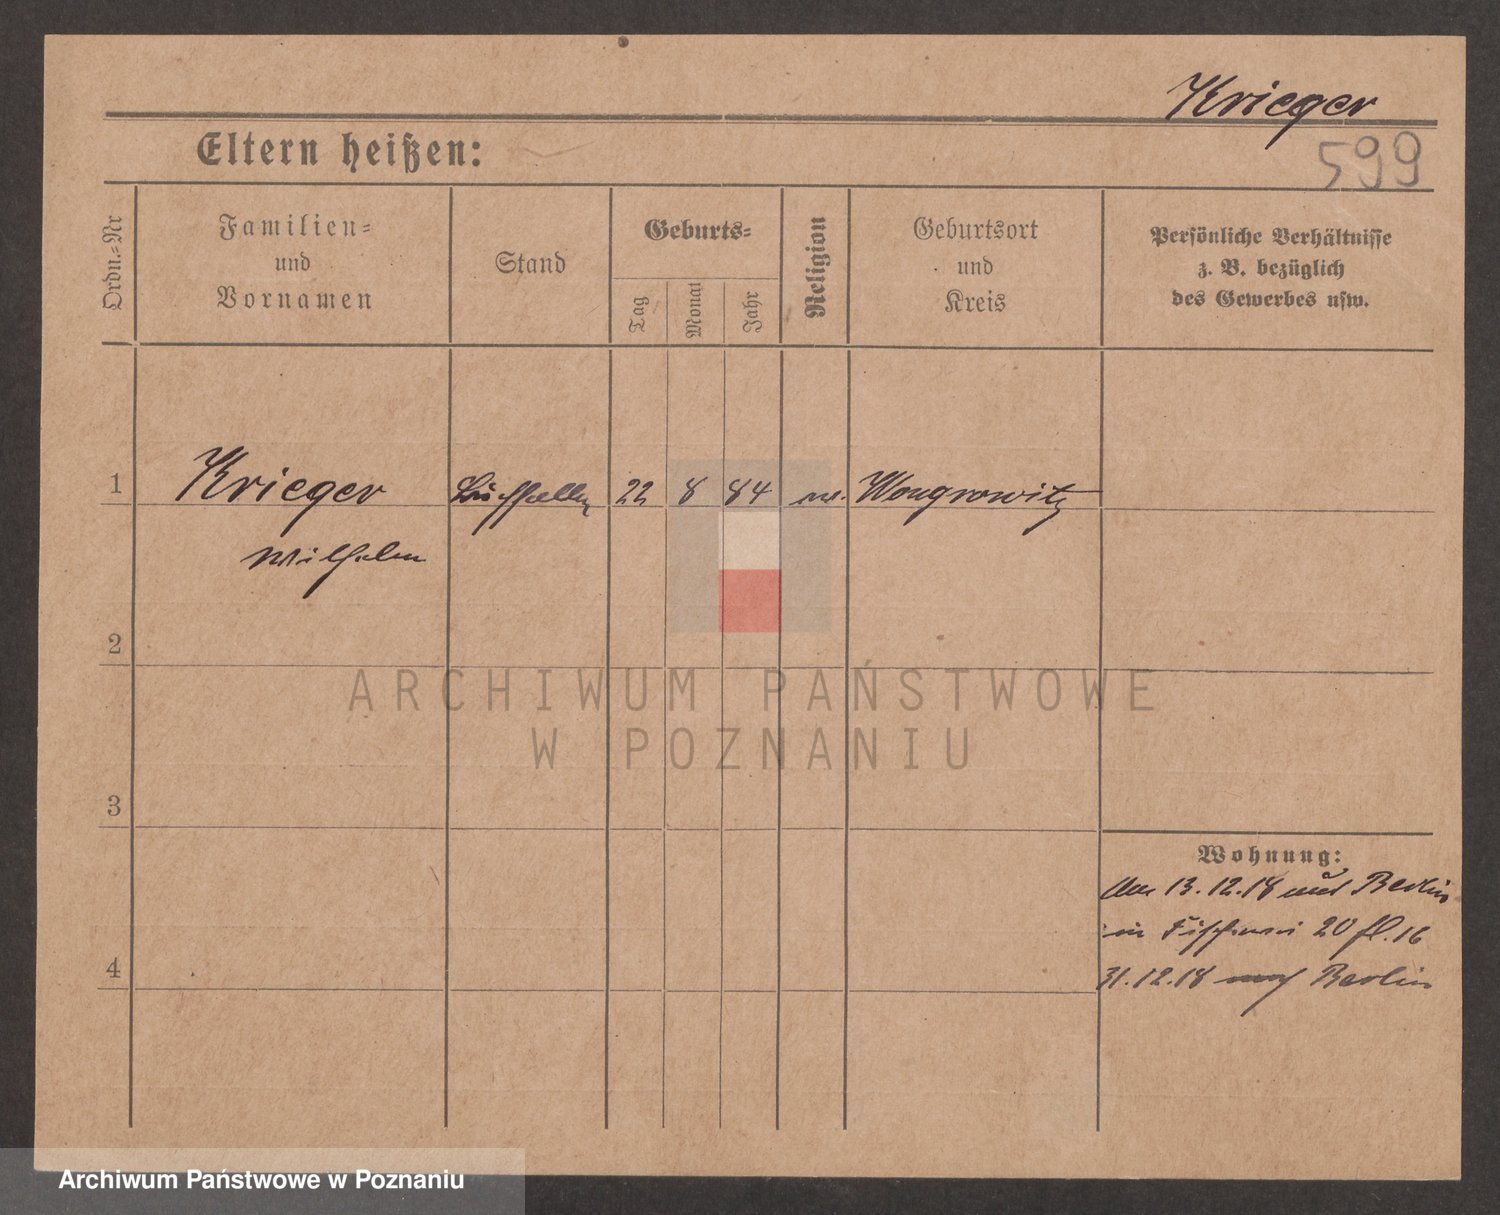 Krieger
599
Eltern heißen:
Ordn.-Nr
Familien=
und
Vornamen
Stand
Geburts=
Tag
Monat
Jahr
Religion
Geburtsort
und
Kreis
Persönliche Verhältnisse
z. B. bezüglich
des Gewerbes usw.
1
Krieger
22
8
84
Wongrowitz
Wilhelm
2
ARCHIWUM PAŃSTWOWE
W POZNANIU
3
Wohnung:
13.12.18 aus Berlin
in Fischerei 20
4
31.12.18 nach Berlin
Archiwum Państwowe w Poznaniu